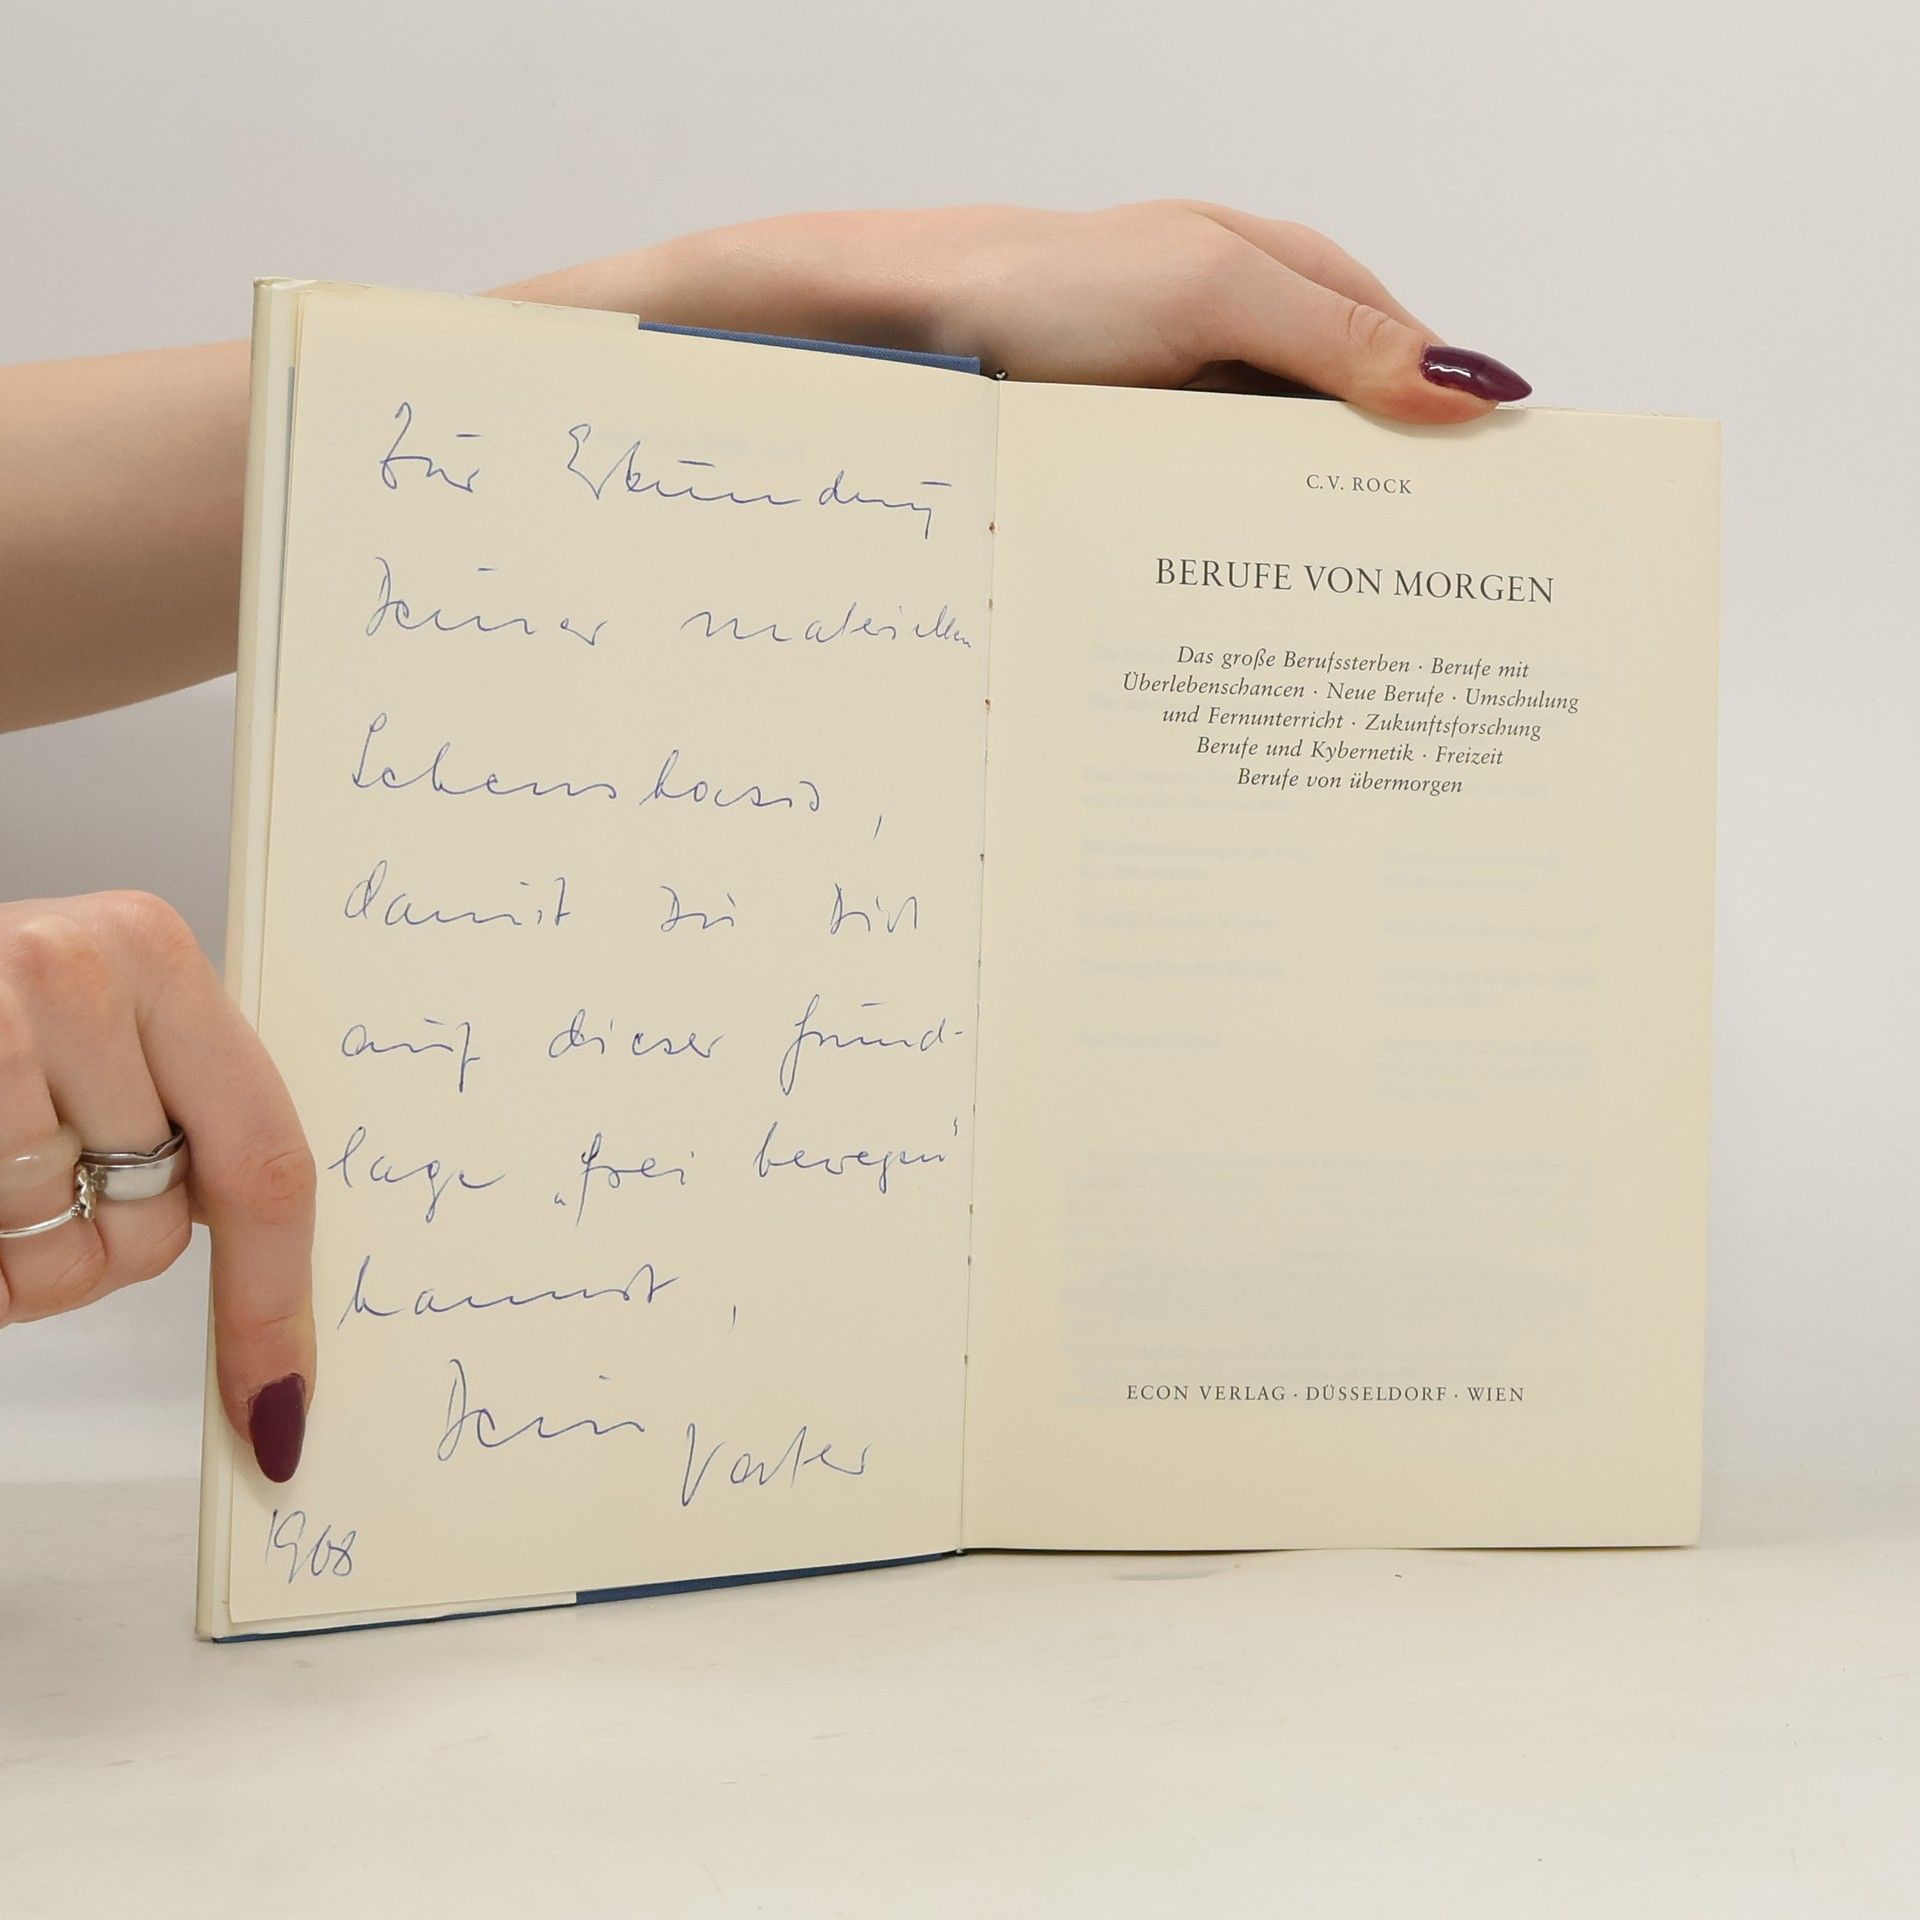 Zur Erkundung
Deiner materiellen
Lebensbasis,
damit Du Dich
auf dieser Grund-
lage „frei bewegen“
kannst,
Dein Vater
1968
C.V. ROCK
BERUFE VON MORGEN
Das große Berufssterben · Berufe mit
Überlebenschancen · Neue Berufe · Umschulung
und Fernunterricht · Zukunftsforschung
Berufe und Kybernetik · Freizeit
Berufe von übermorgen
ECON VERLAG · DÜSSELDORF · WIEN